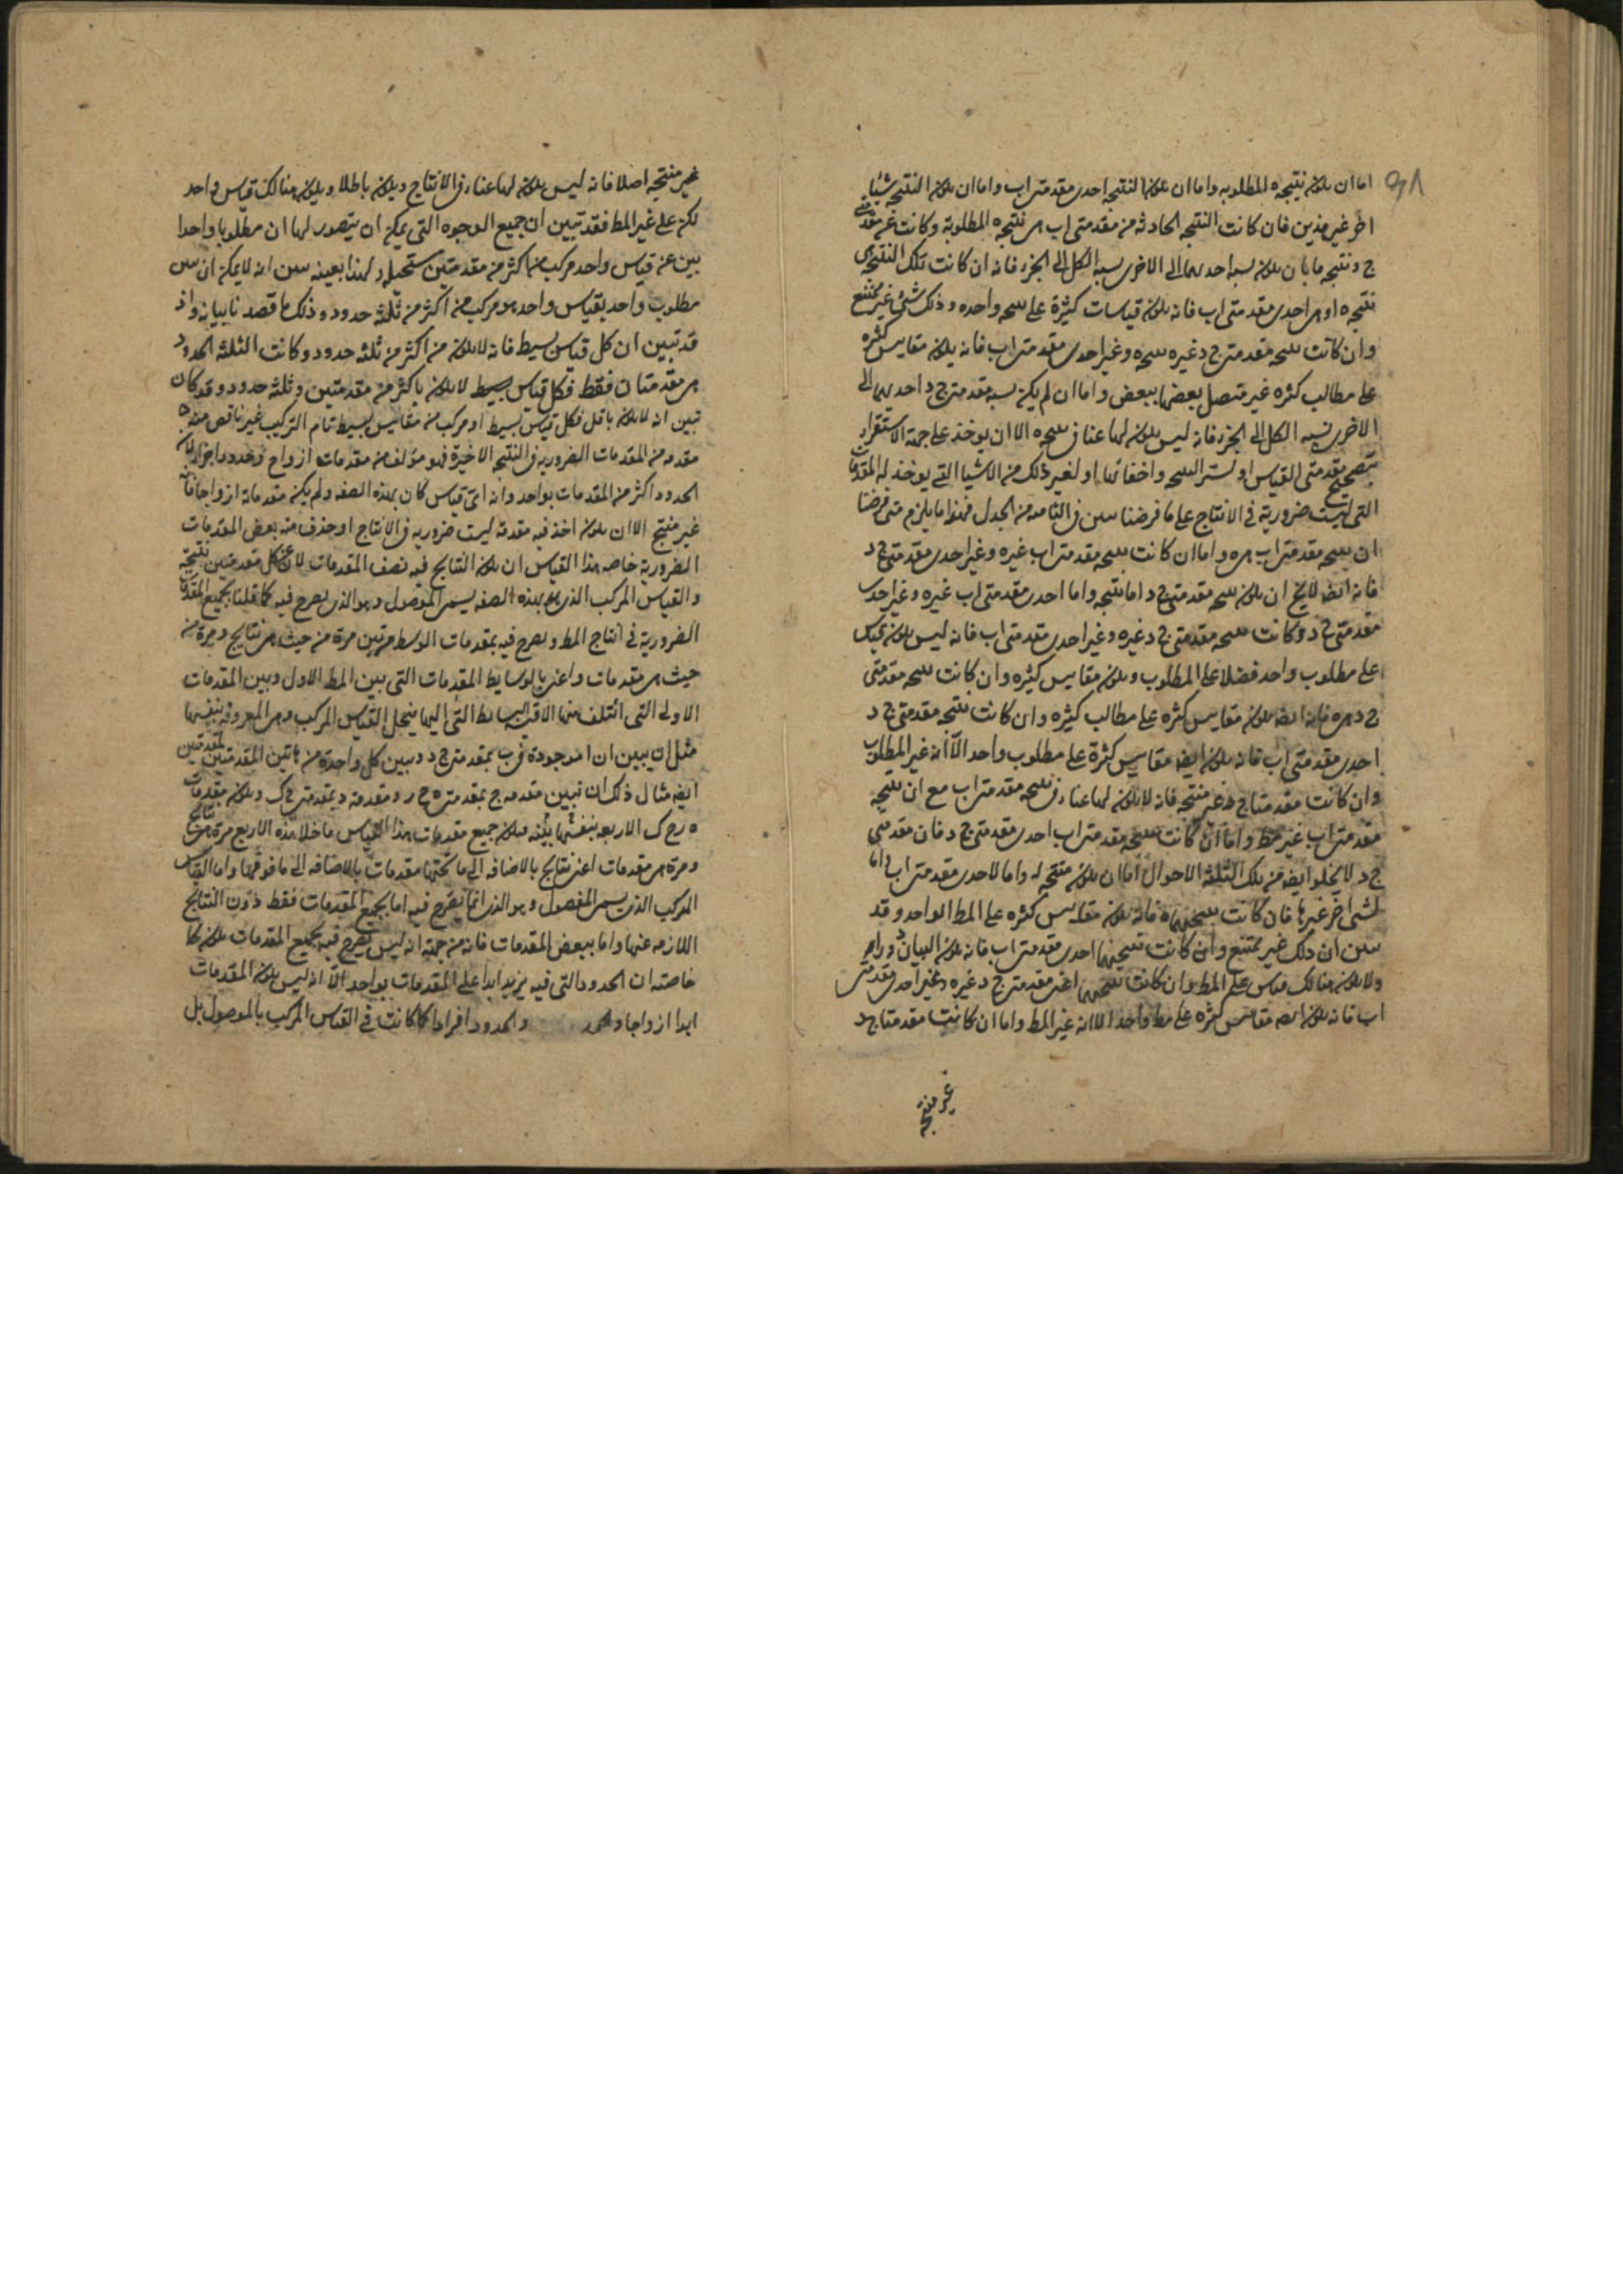 اما ان يكون نتيجه ه المطلوبه واما ان تكون النتيجه احدى مقدمتى اب واما ان يكون النتيجه شيئا
اخر غير هذين فان كانت النتيجه الحادثه من مقدمتى اب هى نتيجه ه المطلوبة وكانت غير مقدمتى
ج د نتيجه ما بان يكون نسبه احديهما الى الاخرى نسبه الكل الى الجزء فانه ان كانت تلك النتيجه هى
نتيجه ه او هى احدى مقدمتى اب فانه يكون قياسات كثيرة على نتيجه واحده وذلك شئ غير ممتنع
وان كانت نتيجه مقدمتى ج د غيره نتيجه ه وغير احدى مقدمتى اب فانه يكون مقاييس كثره
على مطالب كثره غير متصل بعضها ببعض واما ان لم يكن نسبه مقدمتى ج د احديهما الى
الاخرى نسبه الكل الى الجزء فانه ليس يكون لهما عنا فى نتيجه ه الا ان يوخذ على جهة الاستقرار
بتصحيح مقدمتى القياس او لستر النتيجه واخفائها او لغير ذلك من الاشيا التى يوخذ له المقدمات
التى ليست ضرورية فى الانتاج على ما فرضنا تبين فى الثامنه من الجدل فهذا ما يلزم متى فرضنا
ان نتيجه مقدمتى اب هى ه واما ان كانت نتيجه مقدمتى اب غيره وغير احدى مقدمتى ج د
فانه ايضا لا يخ ان يكون نتيجه مقدمتى ج د اما نتيجه ه واما احدى مقدمتى اب غيره وغير احدى
مقدمتى ج د وكانت نتيجه مقدمتى ج د غيره وغير احدى مقدمتى اب فانه ليس يكون قياس
على مطلوب واحد فضلا على المطلوب ويكون مقاييس كثيره وان كانت نتيجه مقدمتى
ج د هى ه فانه ايضا يكون مقاييس كثره على مطالب كثيره وان كانت نتيجه مقدمتى ج د
احدى مقدمتى اب فانه يكون ايضا مقاييس كثرة على مطلوب واحد الا انه غير المطلوب
وان كانت مقدمتا ج د غير منتجه فانه لا يكون لهما عناء فى نتيجه مقدمتى اب مع ان نتيجه
مقدمتى اب غير المط واما ان كانت نتيجه مقدمتى اب احدى مقدمتى ج د فان مقدمتى
ج د لا يخلوا ايضا من تلك الثلثه الاحوال اما ان يكون منتجه له واما لاحدى مقدمتى اب واما
لشى اخر غيرها فان كانت نتيجتهما ه فانه يكون مقاييس كثره على المط الواحد وقد
تبين ان ذلك غير ممتنع وان كانت نتيجتهما احدى مقدمتى اب فانه يكون البيان دورا
ولا يكون هنالك قياس على المط وان كانت نتيجتهما اعنى مقدمتى ج د غيره وغير احدى مقدمتى
اب فانه يكون ايضا مقاييس كثره على مط واحد الا انه غير المط واما ان كانت مقدمتا ج د
غير منتجه
غير منتجه اصلا فانه ليس يكون لهما عناء فى الانتاج ويكون باطلا ويكون هنالك قياس واحد
لكن على غير المط فقد تبين ان جميع الوجوه التى يمكن ان يتصور لها ان مطلوبا واحدا
بين عن قياس واحد مركب من اكثر من مقدمتين مستحيله ولهذا بعينه تبين انه لا يمكن ان يبين
مطلوب واحد بقياس واحد هو مركب من اكثر من ثلثه حدود وذلك ما قصدنا بيانه واذ
قد تبين ان كل قياس بسيط فانه لا يكون من اكثر من ثلثه حدود وكانت الثلثه الحدود
هى مقدمتان فقط فكل قياس بسيط لا يكون باكثر من مقدمتين وثلثه حدود وقد كان
تبين انه لا يكون باقل فكل قياس بسيط او مركب من مقاييس بسيطه تام التركيب غير ناقص منه
مقدمه من المقدمات الضروريه فى النتيجه الاخيرة فهو مؤلف من مقدمات ازواج وحدود افراد لان
الحدود اكثر من المقدمات بواحد وانه اى قياس كان بهذه الصفه ولم يكن مقدماته ازواجا فانه
غير منتج الا ان يكون اخذ فيه مقدمة ليست ضروريه فى الانتاج او حذف منه بعض المقدمات
الضرورية خاصه هذا القياس ان يكون النتايج فيه نصف المقدمات لان عن كل مقدمتين نتيجة
والقياس المركب الذى هو بهذه الصفه يسمى الموصول وهو الذى يصرح فيه كما قلنا بجميع المقدمات
الضرورية فى انتاج المط ويصرح فيه بمقدمات الوسط مرتين مرة من حيث هى نتايج ومرة من
حيث هى مقدمات واعنى بالوسايط المقدمات التى بين المط الاول وبين المقدمات
الاولى التى ائتلف منها الاقيسه البسايط التى اليها ينحل القياس المركب وهى المعروفه بنفسها
مثل ان يبين ان ا موجودة فى ب بمقدمتى ج د ويبين كل واحدة من هاتين المقدمتين بمقدمتين
ايضا مثال ذلك ان نبين مقدمه ج بمقدمتى ه ر ومقدمة د بمقدمتى ح ك ويكون مقدمات
ه ر ح ك الاربعه بنفسها بينه فيكون جميع مقدمات هذا القياس ما خلا هذه الاربع مرة هى نتايج
ومرة هى مقدمات اعنى نتايج بالاضافه الى ما تحتها مقدمات بالاضافه الى ما فوقها واما القياس
المركب الذى يسمى المفصول وهو الذى انما يصرح فيه اما بجميع المقدمات فقط دون النتايج
اللازمه عنها واما ببعض المقدمات فانه من جهة انه ليس يصرح فيه بجميع المقدمات يكون
خاصته ان الحدود التى فيه يزيد ابدا على المقدمات بواحد الا انه ليس يكون المقدمات
ابدا ازواجا والحدود افرادا كما كانت فى القياس المركب بالموصول بل